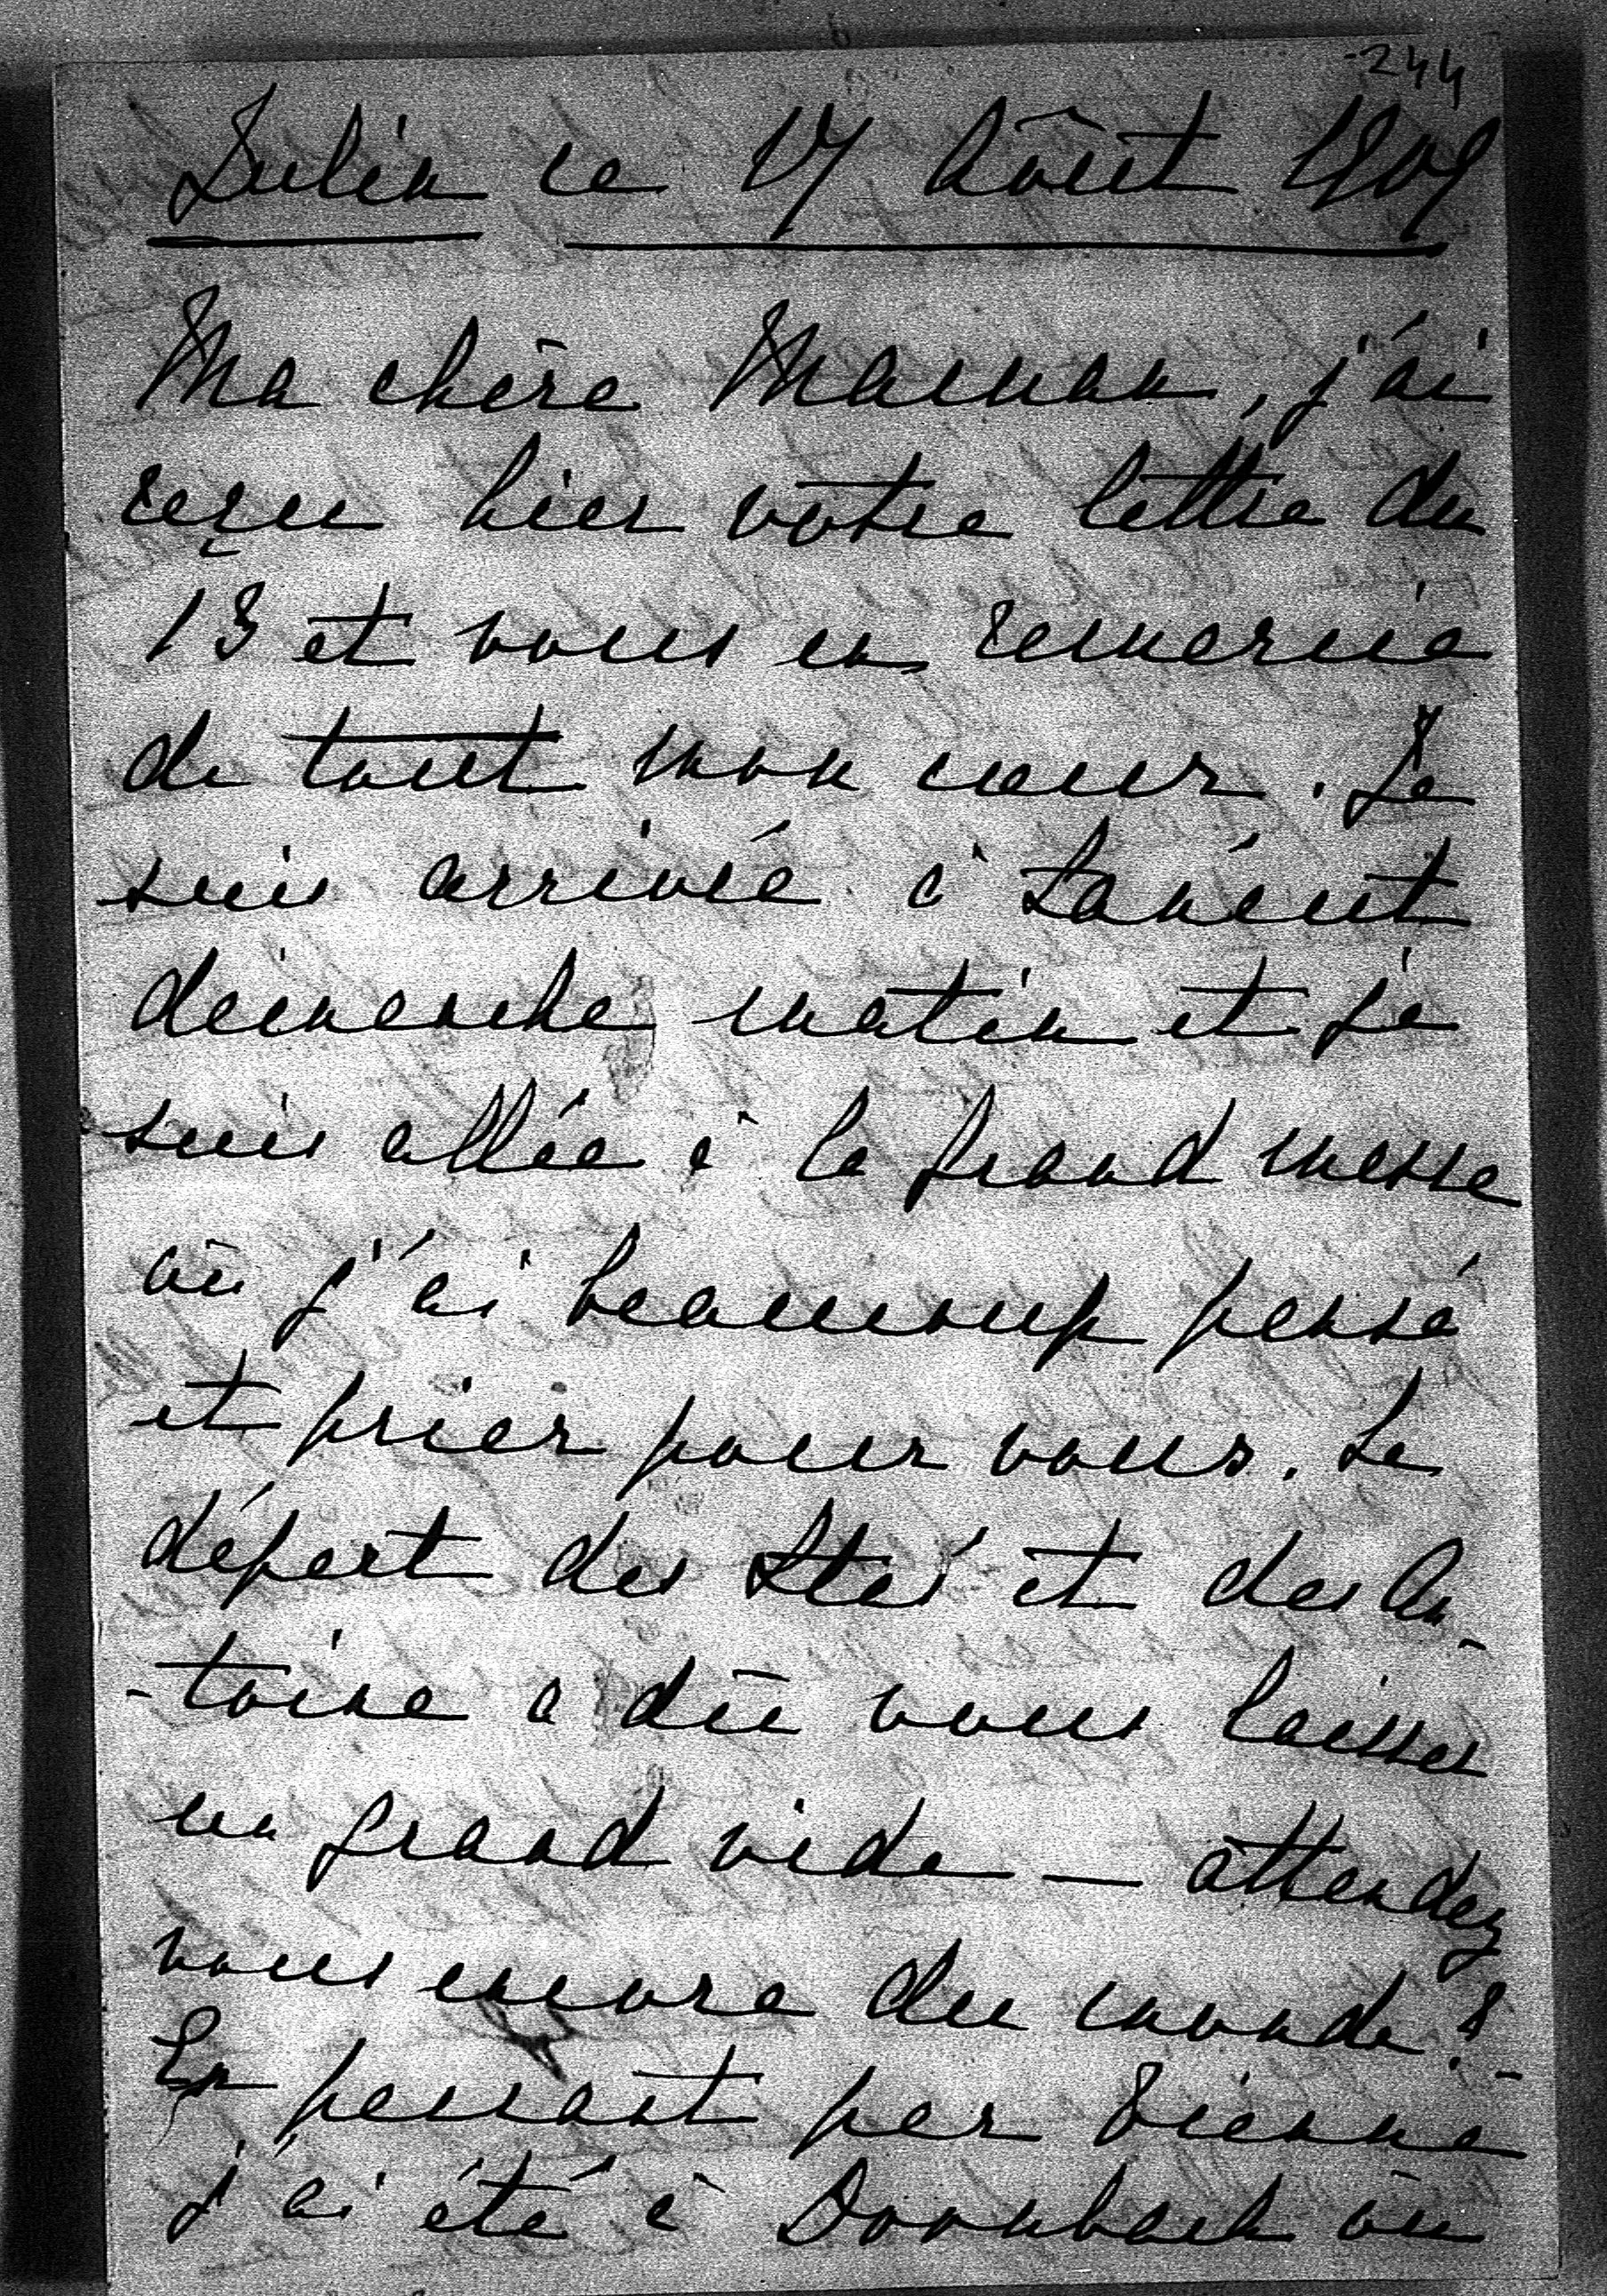 244
Julin le 17 Août 1909
Ma chère Maman, j'ai
reçu hier votre lettre du
13 et vous en remercie
de tout mon cœur. Je
suis arrivée à Łancut
dimanche matin et je
suis allée à la grand messe
où j'ai beaucoup pensé
et prier pour vous. Le
départ des et des An-
-toine a dû vous laisser
un grand vide — attendez
vous encore du monde? -
En passant par Vienne
j'ai été à Dornbach où